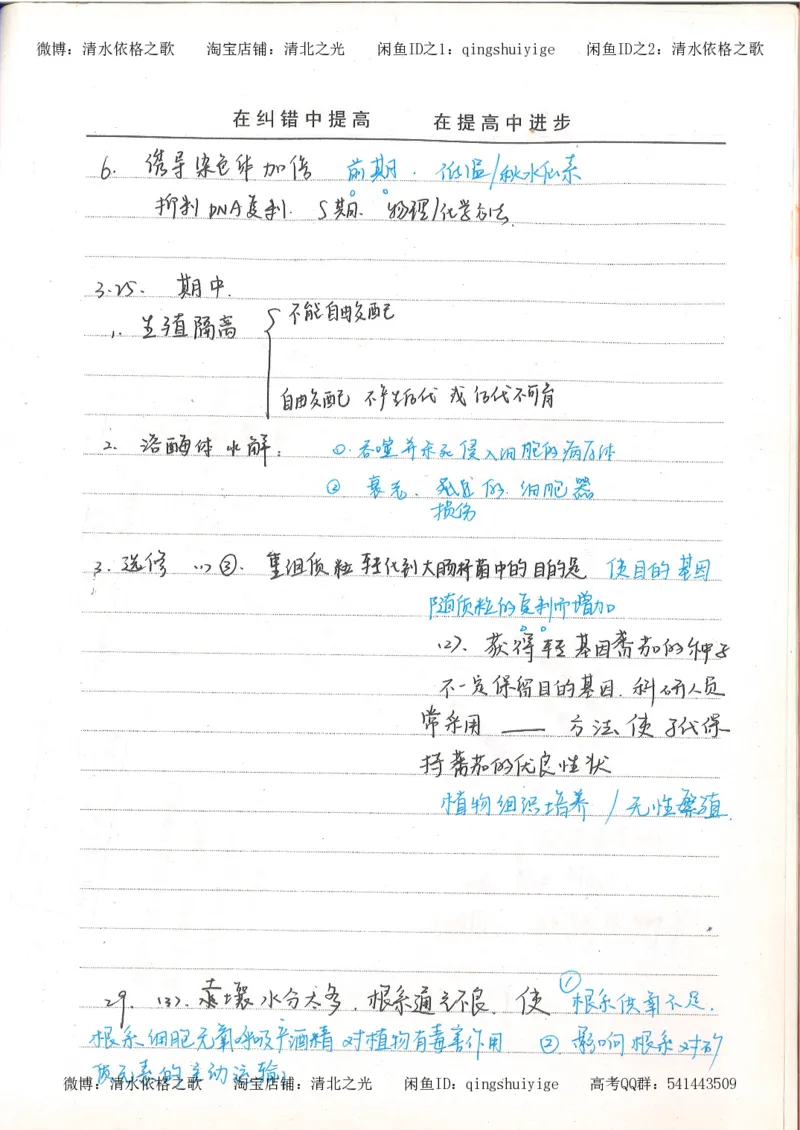 微博：清水依格之歌 淘宝店铺：清北之光 闲鱼ID之1：qingshuiyige 闲鱼ID之2：清水依格之歌
在纠错中提高 在提高中进步
6. 诱导染色体加倍 前期. 低温/秋水仙素
抑制DNA复制. S期. 物理/化学方法.
3.25. 期中.
1. 生殖隔离 不能自由交配
自由交配 不产生后代 或后代不可育
2. 溶酶体 水解: ①. 吞噬并杀死侵入细胞的病原体
② 衰老、 的 细胞器
损伤
3. 选修 (1)③. 重组质粒转化到大肠杆菌中的目的是 使目的基因
随质粒的复制而增加
(2). 获得转基因番茄的种子
不一定保留目的基因. 科研人员
常采用 —— 方法使子代保
持番茄的优良性状
植物组织培养 / 无性繁殖.
29. (3). 壤水分太多, 根系通气不良, 使 ①根系供氧不足,
根系细胞无氧呼吸产酒精 对植物有毒害作用 ② 影响根系对矿
质元素的主动运输;
微博：清水依格之歌 淘宝店铺：清北之光 闲鱼ID：qingshuiyige 高考QQ群：541443509